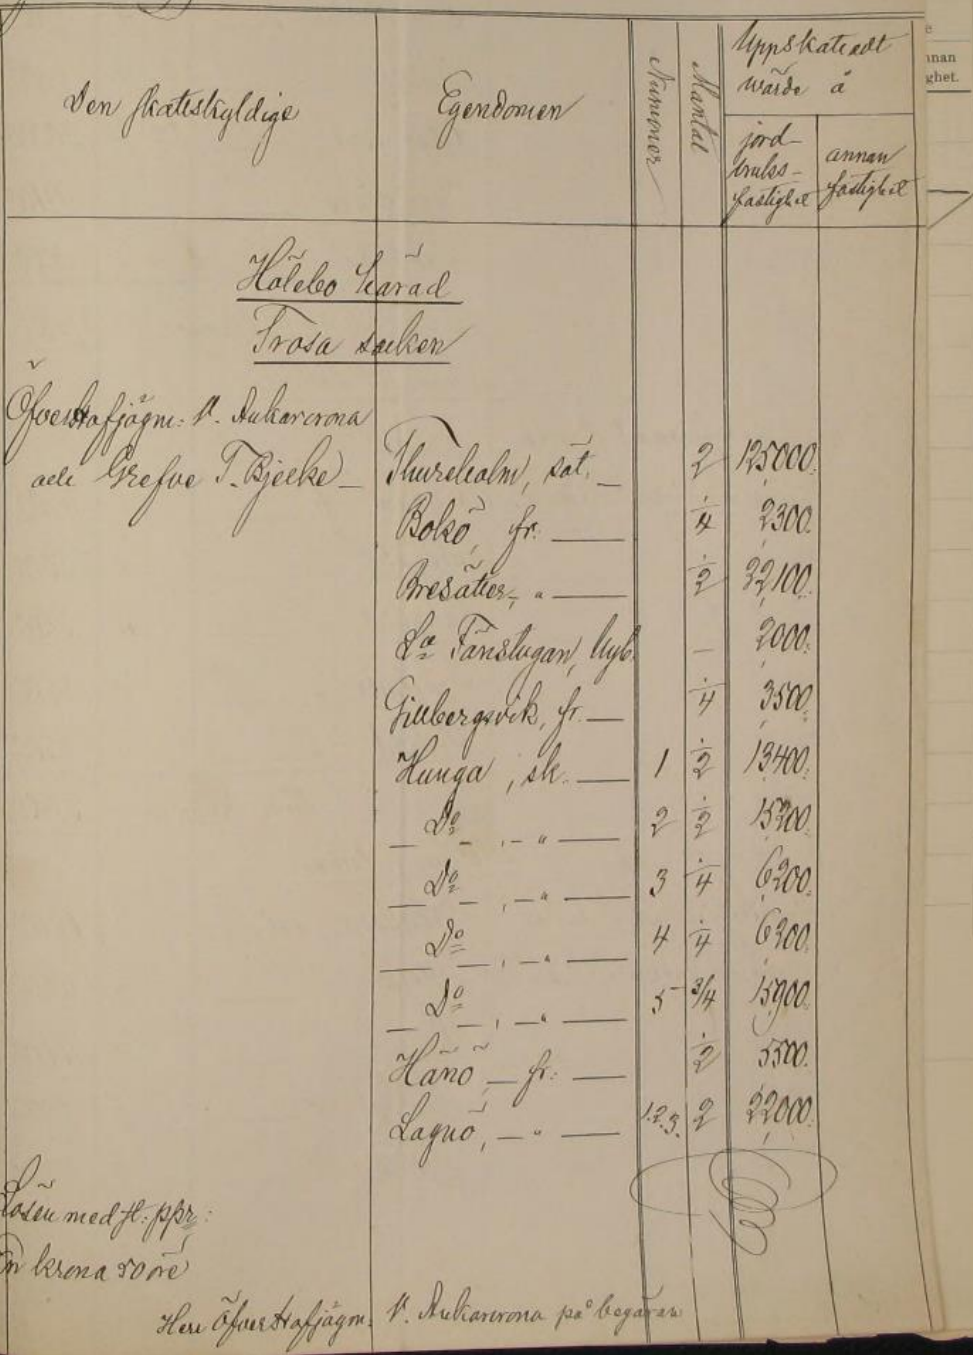 Den skattskyldige Egendomen Nummer Mantal Uppskattadt
wärde å
jord-
bruks-
fastighet
annan
fastighet
nnan
ghet.
Hölebo härad
Trosa socken
Öfverhofjägm: V. Ankarcrona
och Grefve T. Bjelke — Thureholm, sät. — 2 125000.
Bokö, fr. — 1/4 2300.
Bresätter, " — 1/2 22,100.
La Tånstugan, Nyb. — 2000.
Gillbergsvik, fr. — 1/4 3500.
Hunga, sk. — 1 1/2 13400.
— Do — , — " — 2 1/2 15200.
— Do — , — " — 3 1/4 6200.
— Do — , — " — 4 1/4 6200.
— Do — , — " — 5 3/4 15900.
Hånö — fr: — 1/2 5500.
Lagnö, — " — 1.2.3. 2 22000.
Lösen med st: ppr:
En krona 50 öre
Herr Öfverhofjägm: V. Ankarcrona på begäran